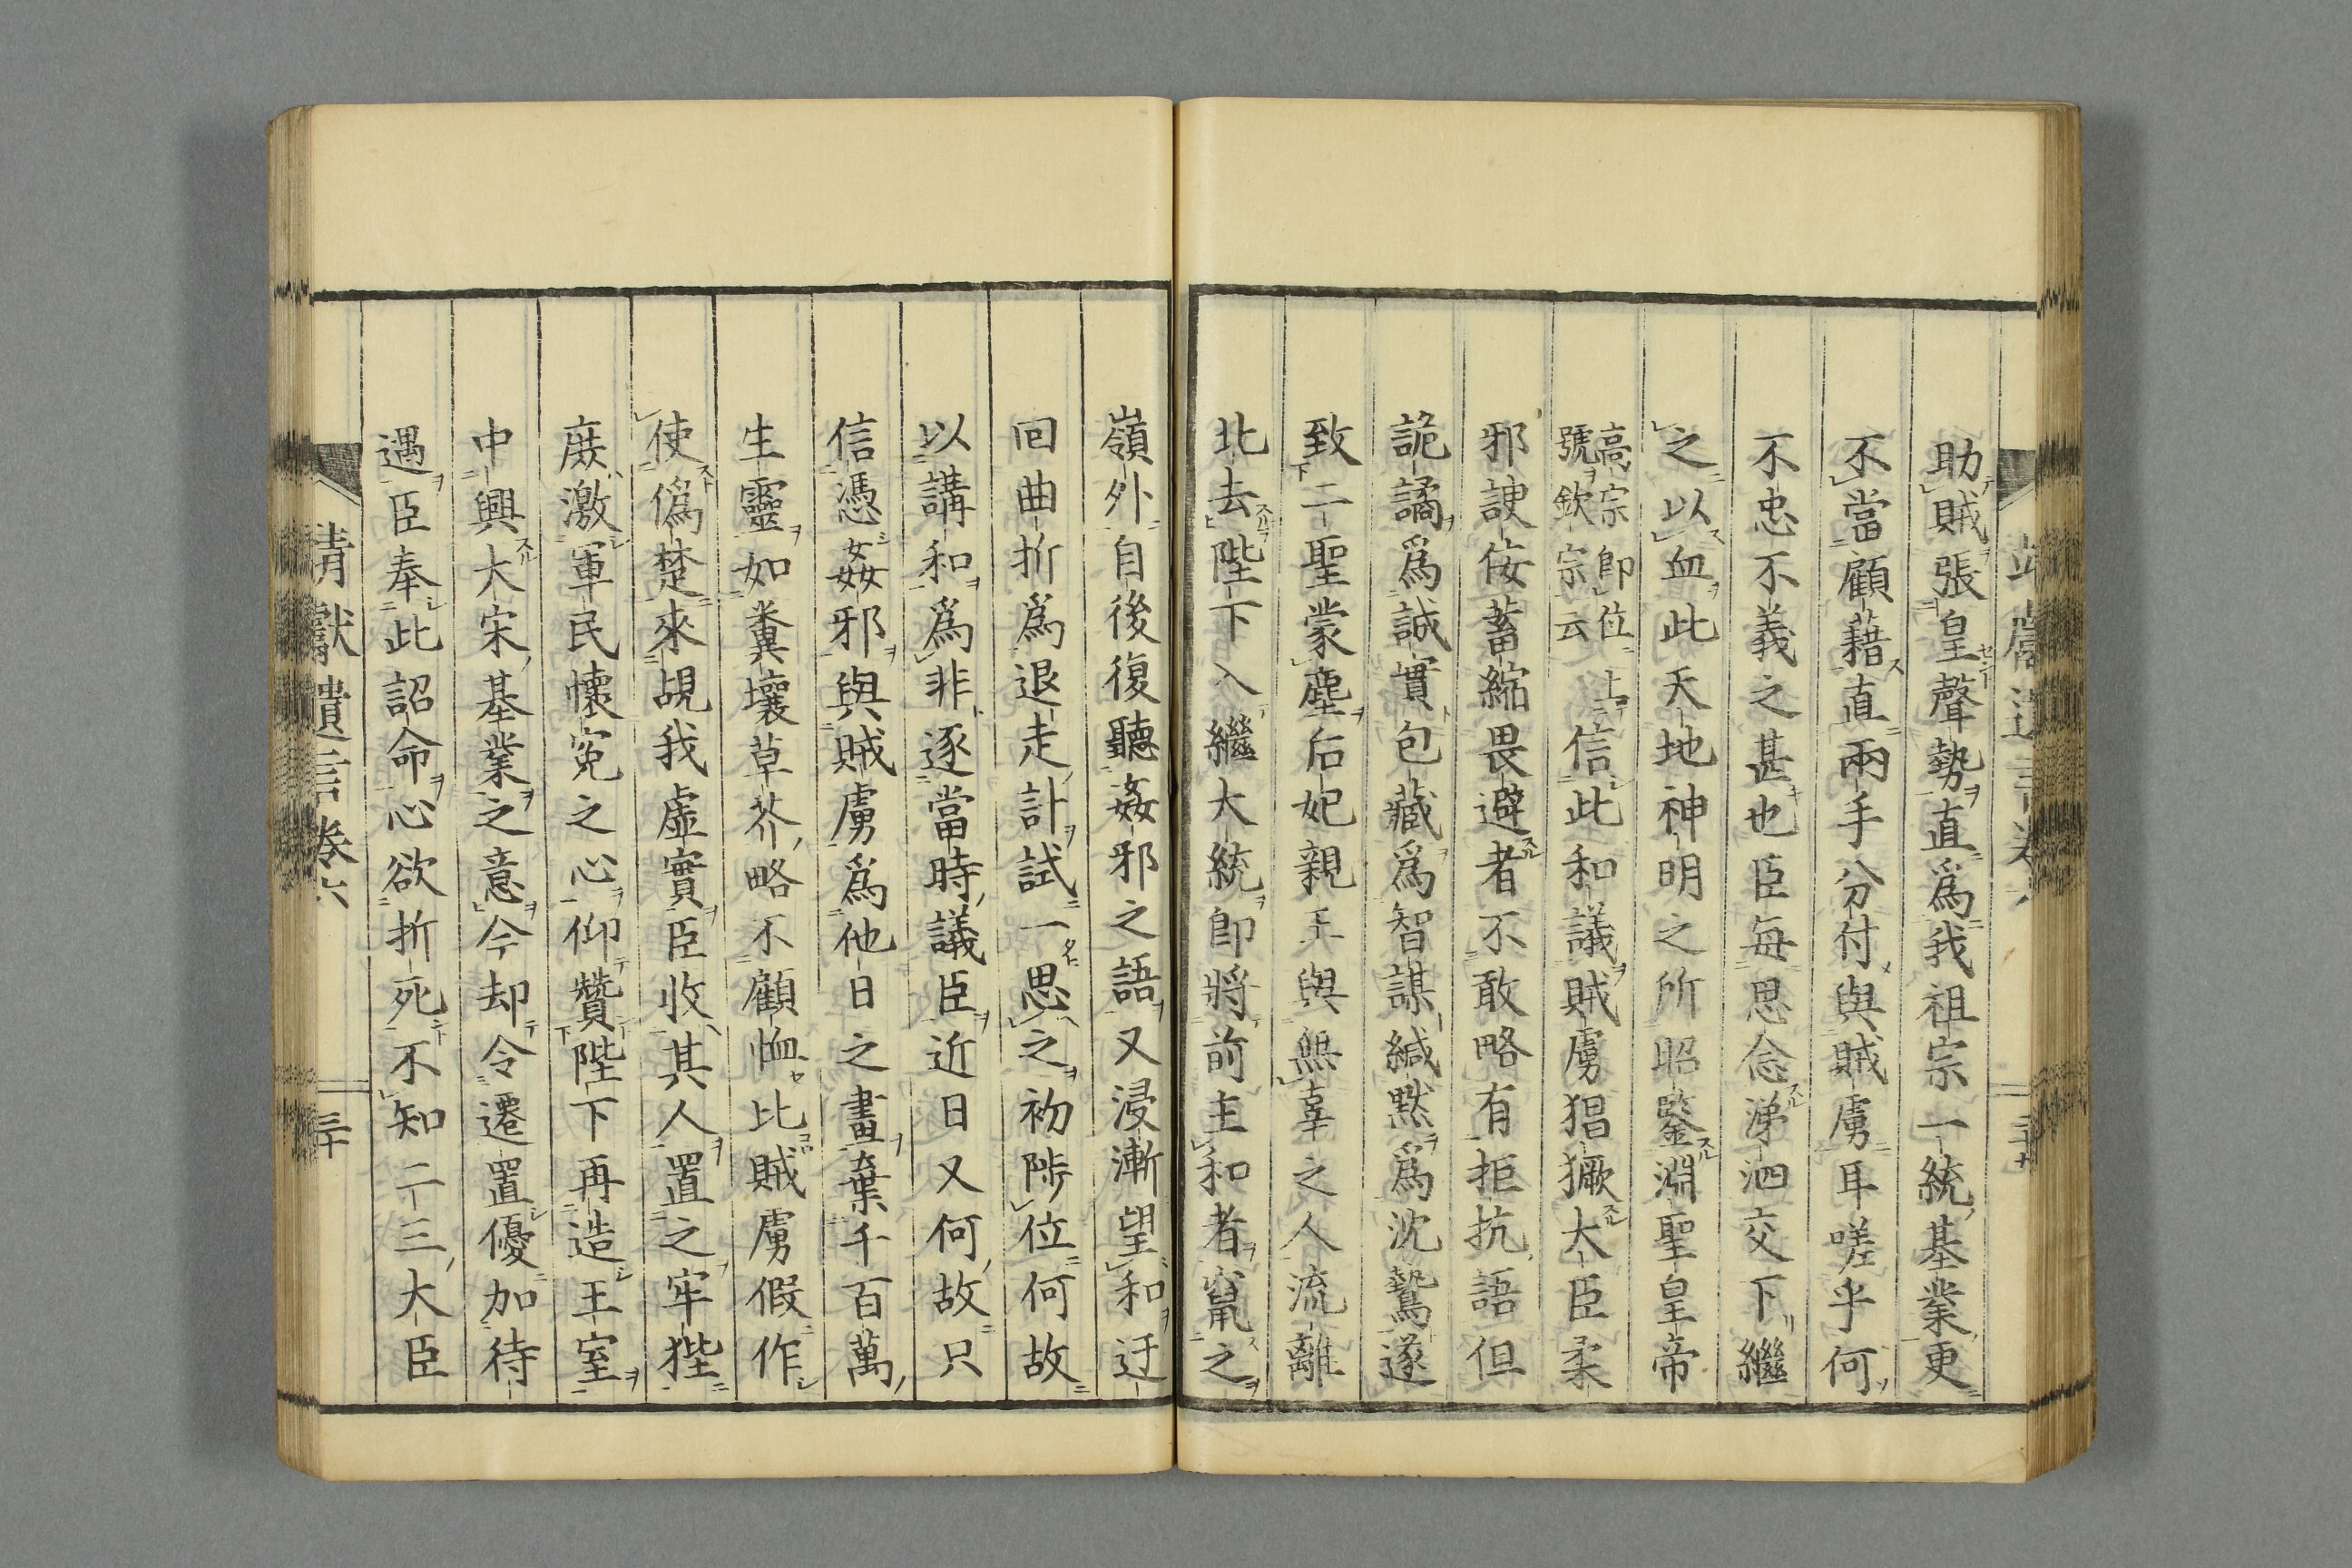 助賊張皇聲勢直爲我祖宗一統基業更
不當顧藉直兩手分付與賊虜耳嗟乎何
不忠不義之甚也臣每思念涕泗交下繼
之以血此天地神明之所昭鑒淵聖皇帝
高宗即位上
號欽宗云
信此和議賊虜猖獗大臣柔
邪諛佞蓄縮畏避者不敢略有拒抗語但
詭譎爲誠實包藏爲智謀緘默爲沈鷙遂
致二聖蒙塵后妃親王與無辜之人流離
北去陛下入繼大統即將前主和者竄之
嶺外自後復聽姦邪之語又浸漸望和迂
回曲折爲退走計試一思之初陟位何故
以講和爲非逐當時議臣近日又何故只
信憑姦邪與賊虜爲他日之畫棄千百萬
生靈如糞壤草芥略不顧恤比賊虜假作
使僞楚來覘我虛實臣收其人置之牢狴
庶激軍民懷冤之心仰贊陛下再造王室
中興大宋基業之意今却令遷置優加待
遇臣奉此詔命心欲折死不知二三大臣
靖獻遺言卷六
三十